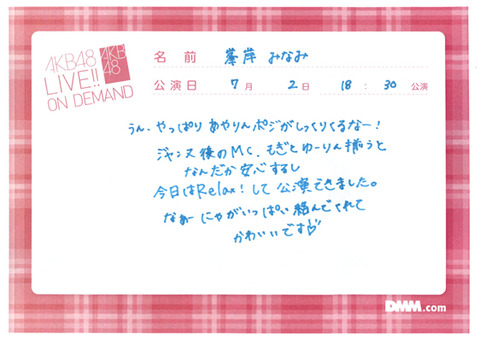 AKB48
LIVE!!
ON DEMAND
AKB
48
名 前 峯岸 みなみ
公演日 7月 2日 18:30 公演
うん、やっぱりあやりんポジがしっくりくるなー!
ジャンヌ後のMC、もぎとゆーりん揃うと
なんだか安心するし
今日はRelax!して公演できました。
なぁーにゃがいっぱい絡んでくれて
かわいいです
DMM.com